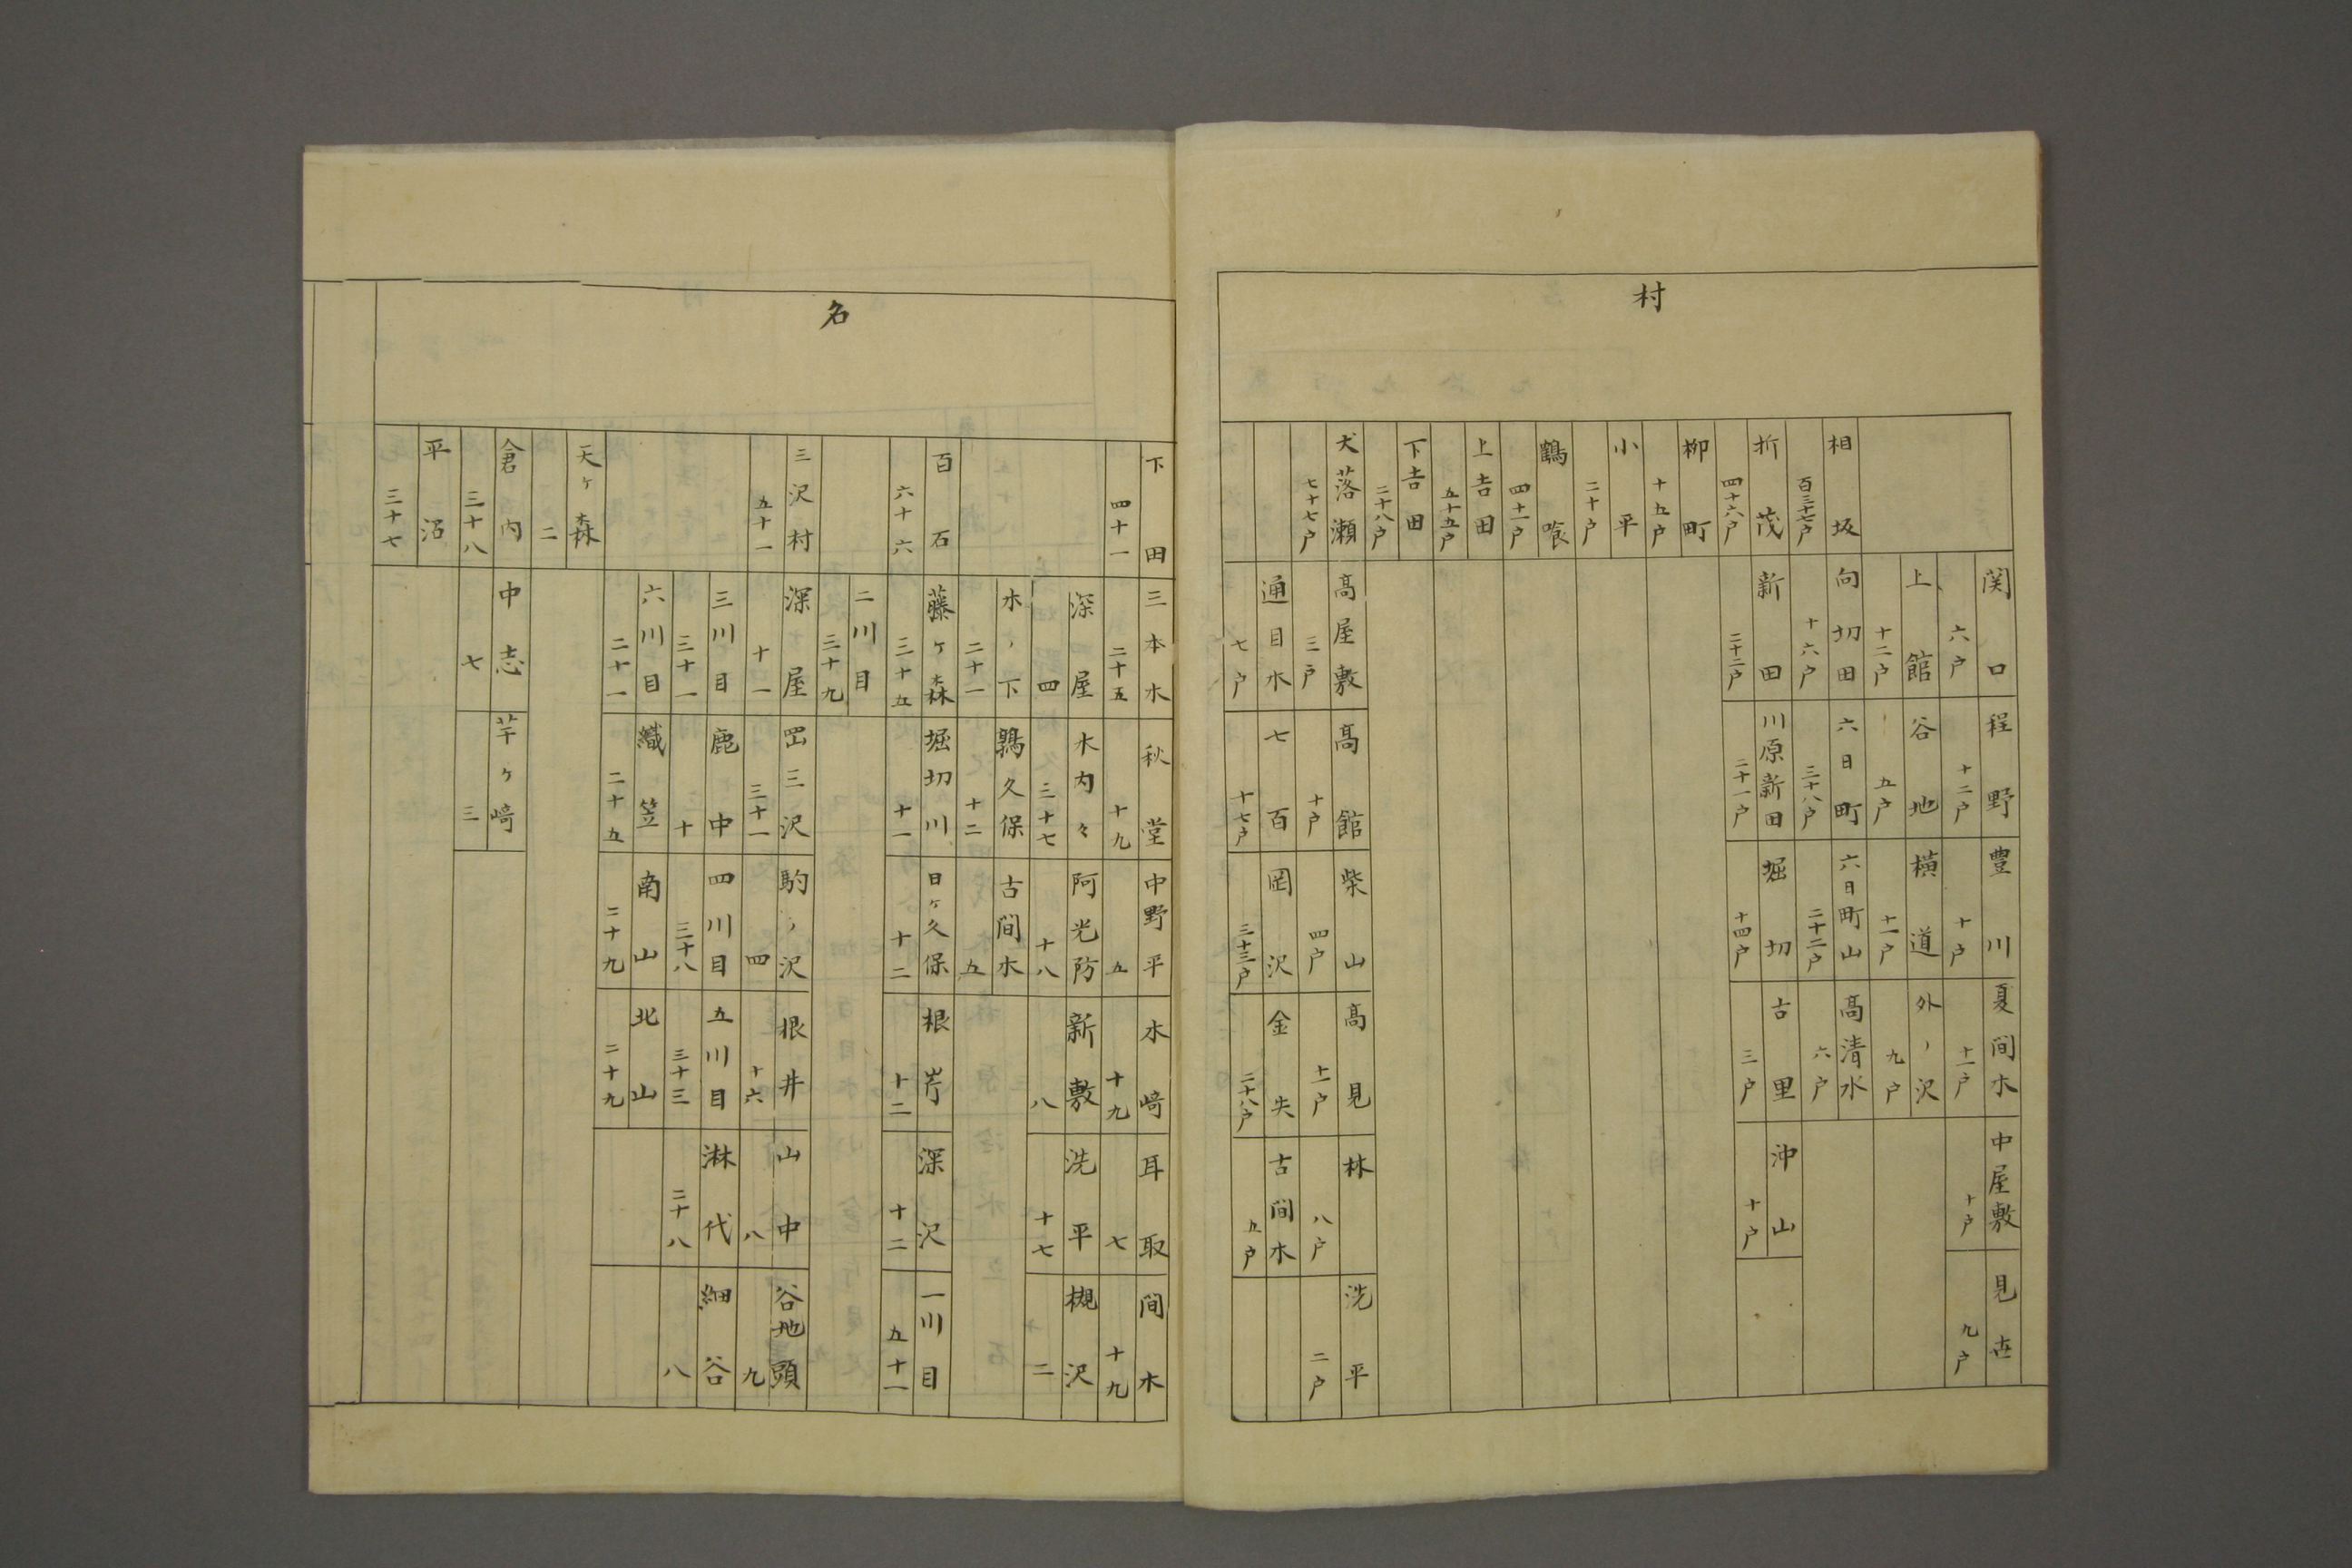 村
関口 六戸
程野 十二戸
豊川 十戸
夏間木 十一戸
中屋敷 十戸
見世 九戸
上館 十二戸
谷地 五戸
横道 十一戸
外ノ沢 九戸
相坂 百三十七戸
向切田 十六戸
六日町 三十八戸
六日町山 二十二戸
高清水 六戸
折茂 四十六戸
新田 二十二戸
川原新田 二十一戸
堀切 十四戸
古里 三戸
沖山 十戸
柳町 十五戸
小平 二十戸
鶴喰 四十一戸
上吉田 五十五戸
下吉田 二十八戸
犬落瀬 七十七戸
高屋敷 三戸
高館 十戸
柴山 四戸
高見 十一戸
林 八戸
洗平 二戸
通目木 七戸
七百 十七戸
岡沢 三十三戸
金矢 二十八戸
古間木 五戸
名
下田 四十一
三本木 二十五
秋堂 十九
中野平 五
木﨑 十九
耳取 七
間木 十九
深屋 四
木内々 三十七
阿光防 十八
新敷 八
洗平 十七
槻沢 二
木ノ下 二十一
鶉久保 十二
古間木 五
百石 六十六
藤ヶ森 三十五
堀切川 十一
日ヶ久保 十二
根岸 十二
深沢 十二
一川目 五十一
二川目 三十九
三沢村 五十一
深屋 十一
岡三沢 三十一
駒ノ沢 四
根井 十六
山中 八
谷地頭 九
三川目 三十一
鹿中 十
四川目 三十八
五川目 三十三
淋代 二十八
細谷 八
六川目 二十一
織笠 二十五
南山 二十九
北山 二十九
天ヶ森 二
倉内 三十八
中志 七
芋ヶ﨑 三
平沼 三十七